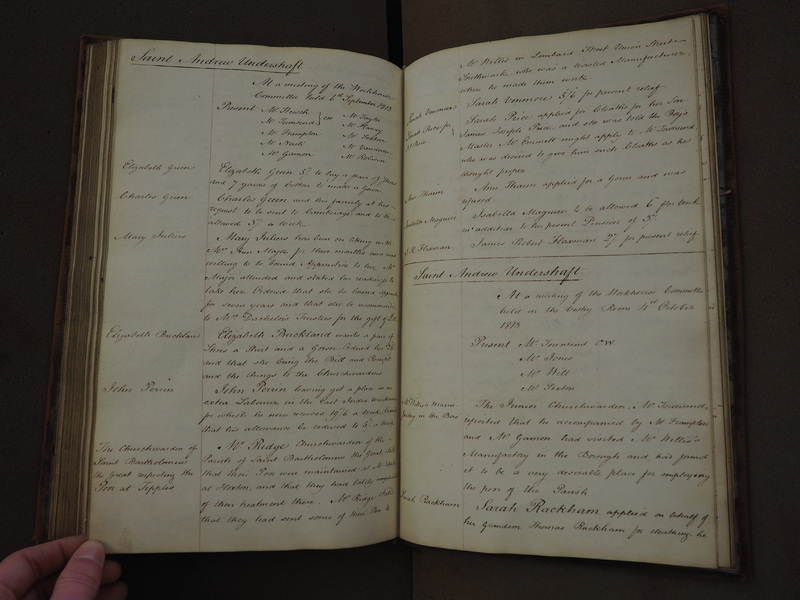 Saint Andrew Undershaft
At a meeting of the Workhouse
Committee held 6th September 1813
Present Mr Hirsch
Mr Townend } CW
Mr Frampton
Mr Nash
Mr Gamon
Mr Taylor
Mr Harvey
Mr Sexton
Mr Robson
Elizabeth Green
Elizabeth Green 5/ to buy a pair of Shoes
and 7 yards of Cotton to make a Gown
Charles Green
Charles Green and his family at his
request to be sent to Cambridge and to be
allowed 3/ a Week
Mary Julius
Mary Julius has been on liking with
Mrs Ann Major for three months and was
willing to be bound Apprentice to her Mrs
Major attended and stated her readiness to
take her Ordered that she be bound
for seven years and that she be recommended
to Mrs Bachelor's Trustees for the gift of
Elizabeth Buckland
Elizabeth Buckland wants a pair of
Shoes a Shirt and a Gown Ordered
and that she bring the Bill and Receipt
and the things to the Churchwardens
John Perrin
John Perrin having got a place as an
extra Labourer in the East India Warehouse
for which he now received 19/6 a Week
that his allowance be reduced to a week
The Churchwarden of
Saint Bartholomew
the Great respecting the
Poor at Tipples
Mr Ridge Churchwarden of the
Parish of Saint Bartholomew the Great
that their Poor were maintained at Mr
at Hoxton, and that they had lately complained
of their treatment there. Mr Ridge stated
that they had sent some of their Poor to
Mr Willis in Lombard Street Union Street
Southwark, who was a Worsted Manufacturer,
where he made them work
Sarah Vennor 5/6 for present relief
Sarah Price for
Sarah Price applied for Cloaths for her Son
James Joseph Price, and she was told the Boy's
Master Mr Cornell might apply to Mr Townend
who was desired to give him such Cloaths as he
thought proper
Ann Thain
Ann Thain applied for a Gown and was
refused
Isabella Maguire
Isabella Maguire to be allowed 6d per Week
in addition to her present Pension of 3/
J. R. Flaxman
James Robert Flaxman 2/ for present relief
Saint Andrew Undershaft
At a meeting of the Workhouse Committee
held in the Vestry Room 4th October
1813
Present Mr Townend CW
Mr Jones
Mr Witt
Mr Sexton
Mr Willis's Manu-
factory in the Boro'
The Junior Churchwarden, Mr Townend,
reported that he accompanied by Mr Frampton
and Mr Gamon had visited Mr Willis's
Manufactory in the Borough and had found
it to be a very desirable place for employing
the poor of the Parish
Sarah Rackham
Sarah Rackham applied on behalf of
her Grandson Thomas Rackham for cloathing he